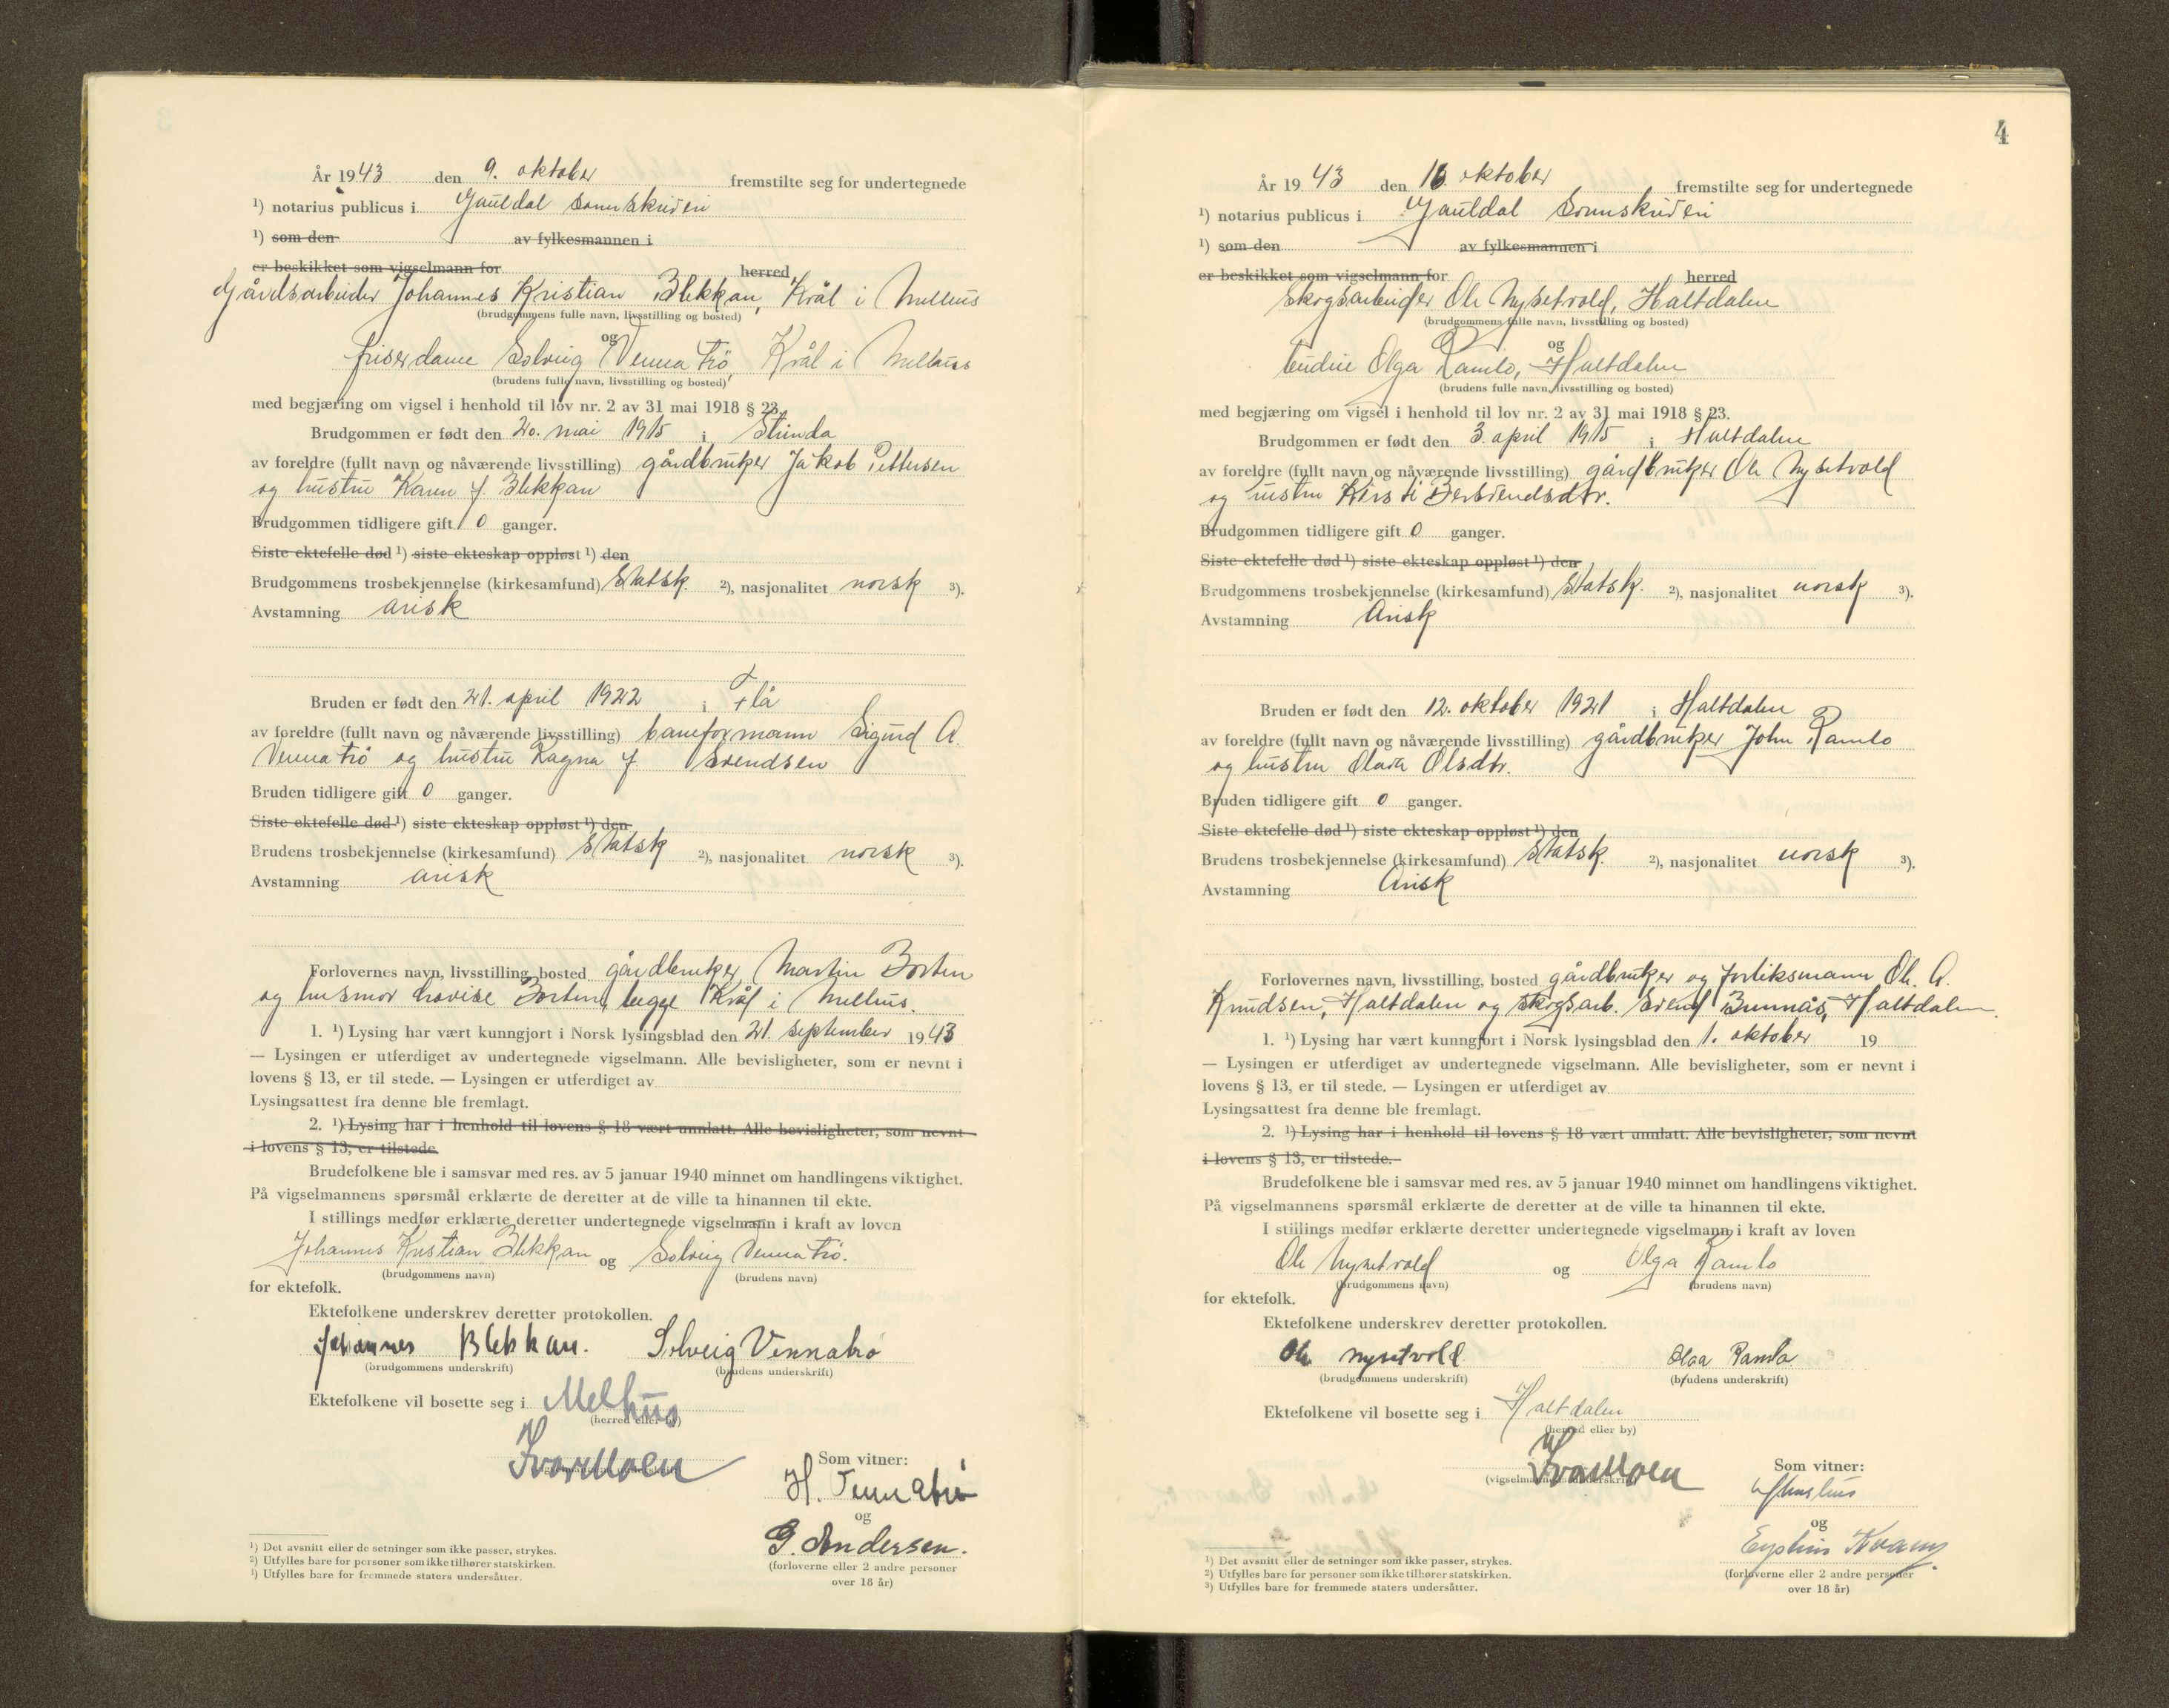 År 1943 den 9. oktober fremstilte seg for undertegnede
¹) notarius publicus i Gauldal sorenskriveri
¹) som den av fylkesmannen i
er beskikket som vigselmann for herred
Gårdsarbeider Johannes Kristian Blekkan, Kvål i Melhus
(brudgommens fulle navn, livsstilling og bosted)
og
friserdame Solveig Vennatrö, Kvål i Melhus
(brudens fulle navn, livsstilling og bosted)
med begjæring om vigsel i henhold til lov nr. 2 av 31 mai 1918 § 23.
Brudgommen er født den 20. mai 1915 i Strinda
av foreldre (fullt navn og nåværende livsstilling) gårdbruker Jakob Pettersen
og hustru Karen f. Blekkan
Brudgommen tidligere gift 0 ganger.
Siste ektefelle død ¹) siste ekteskap oppløst ¹) den
Brudgommens trosbekjennelse (kirkesamfund) Statsk. ²), nasjonalitet norsk ³).
Avstamning arisk
Bruden er født den 21. april 1922 i Flå
av foreldre (fullt navn og nåværende livsstilling) baneformann Sigurd A.
Vennatrö og hustru Ragna f Svendsen
Bruden tidligere gift 0 ganger.
Siste ektefelle død ¹) siste ekteskap oppløst ¹) den
Brudens trosbekjennelse (kirkesamfund) Statsk ²), nasjonalitet norsk ³).
Avstamning arisk
Forlovernes navn, livsstilling, bosted gårdbruker Martin Borten
og husmor Lovise Borten, begge Kvål i Melhus.
1. ¹) Lysing har vært kunngjort i Norsk lysingsblad den 21. september 1943
— Lysingen er utferdiget av undertegnede vigselmann. Alle bevisligheter, som er nevnt i
lovens § 13, er til stede. — Lysingen er utferdiget av
Lysingsattest fra denne ble fremlagt.
2. ¹) Lysing har i henhold til lovens § 18 vært unnlatt. Alle bevisligheter, som nevnt
i lovens § 13, er tilstede.
Brudefolkene ble i samsvar med res. av 5 januar 1940 minnet om handlingens viktighet.
På vigselmannens spørsmål erklærte de deretter at de ville ta hinannen til ekte.
I stillings medfør erklærte deretter undertegnede vigselmann i kraft av loven
Johannes Kristian Blekkan og Solveig Vennatrö.
(brudgommens navn) (brudens navn)
for ektefolk.
Ektefolkene underskrev deretter protokollen.
Johannes Blekkan. Solveig Vennatrø
(brudgommens underskrift) (brudens underskrift)
Ektefolkene vil bosette seg i Melhus
(herred eller by)
Ivar Moen
Som vitner:
H. Vennatrø
og
G. Andersen.
(forloverne eller 2 andre personer
over 18 år)
¹) Det avsnitt eller de setninger som ikke passer, strykes.
²) Utfylles bare for personer som ikke tilhører statskirken.
³) Utfylles bare for fremmede staters undersåtter.
4
År 1943 den 16. oktober fremstilte seg for undertegnede
¹) notarius publicus i Gauldal Sorenskriveri
¹) som den av fylkesmannen i
er beskikket som vigselmann for herred
Skogsarbeider Ole Nysetvold, Haltdalen
(brudgommens fulle navn, livsstilling og bosted)
og
budeie Olga Ramlo, Haltdalen
(brudens fulle navn, livsstilling og bosted)
med begjæring om vigsel i henhold til lov nr. 2 av 31 mai 1918 § 23.
Brudgommen er født den 3. april 1915 i Haltdalen
av foreldre (fullt navn og nåværende livsstilling) gårdbruker Ole Nysetvold
og hustru Kirsti Bersvendsdtr.
Brudgommen tidligere gift 0 ganger.
Siste ektefelle død ¹) siste ekteskap oppløst ¹) den
Brudgommens trosbekjennelse (kirkesamfund) Statsk. ²), nasjonalitet norsk ³).
Avstamning Arisk
Bruden er født den 12. oktober 1921 i Haltdalen
av foreldre (fullt navn og nåværende livsstilling) gårdbruker John Ramlo
og hustru Olava Olsdtr.
Bruden tidligere gift 0 ganger.
Siste ektefelle død ¹) siste ekteskap oppløst ¹) den
Brudens trosbekjennelse (kirkesamfund) Statsk. ²), nasjonalitet norsk ³).
Avstamning Arisk
Forlovernes navn, livsstilling, bosted gårdbruker og forliksmann Ole A.
Knudsen, Haltdalen og skogsarb. Svend Bunnås, Haltdalen.
1. ¹) Lysing har vært kunngjort i Norsk lysingsblad den 1. oktober 19
— Lysingen er utferdiget av undertegnede vigselmann. Alle bevisligheter, som er nevnt i
lovens § 13, er til stede. — Lysingen er utferdiget av
Lysingsattest fra denne ble fremlagt.
2. ¹) Lysing har i henhold til lovens § 18 vært unnlatt. Alle bevisligheter, som nevnt
i lovens § 13, er tilstede.
Brudefolkene ble i samsvar med res. av 5 januar 1940 minnet om handlingens viktighet.
På vigselmannens spørsmål erklærte de deretter at de ville ta hinannen til ekte.
I stillings medfør erklærte deretter undertegnede vigselmann i kraft av loven
Ole Nysetvold og Olga Ramlo
(brudgommens navn) (brudens navn)
for ektefolk.
Ektefolkene underskrev deretter protokollen.
Ole Nysetvold Olga Ramlo
(brudgommens underskrift) (brudens underskrift)
Ektefolkene vil bosette seg i Haltdalen
(herred eller by)
Ivar Moen
(vigselmannens underskrift)
Som vitner:
og
Kvam
(forloverne eller 2 andre personer
over 18 år)
¹) Det avsnitt eller de setninger som ikke passer, strykes.
²) Utfylles bare for personer som ikke tilhører statskirken.
³) Utfylles bare for fremmede staters undersåtter.